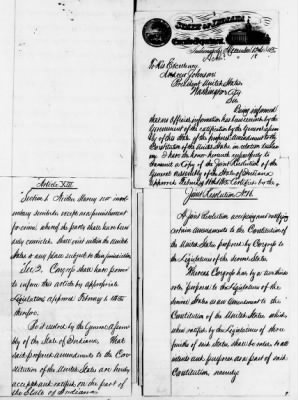 STATE OF INDIANA
Executive Department
Indianapolis December
To His Excellency
Andrew Johnson
President United States
Washington City
Sir
Being informed
that no official information has been received by the
Government of the ratification by the General Assem
bly of this State of the proposed amendment to the
Constitution of the United States in relation to slave
ry, I have the honor herewith respectfully to
transmit a Copy of the Joint Resolution of the
General Assembly of the State of Indiana
approved February
Joint Resolution
A Joint Resolution accepting and ratifying
certain amendments to the Constitution of
the United States proposed by Congress to
the Legislatures of the several States.
Whereas Congress has by a two thirds
vote proposed to the Legislatures of the
several States as an amendment to the
Constitution of the United States which,
when ratified by the Legislatures of three
fourths of said States, shall be valid to all
intents and purposes as a part of said
Constitution namely
Article XIII
Section 1. Neither Slavery nor invol
untary servitude except as a punishment
for crime whereof the party shall have been
duly convicted, shall exist within the United
States or any place subject to their jurisdiction
Sec 2. Congress shall have power
to enforce this article by appropriate
Legislation,
therefore.
Be it resolved by the General Assem
bly of the State of Indiana, That
said proposed amendments to the Con
stitution of the United States are hereby
accepted and ratified on the part of
the State of Indiana